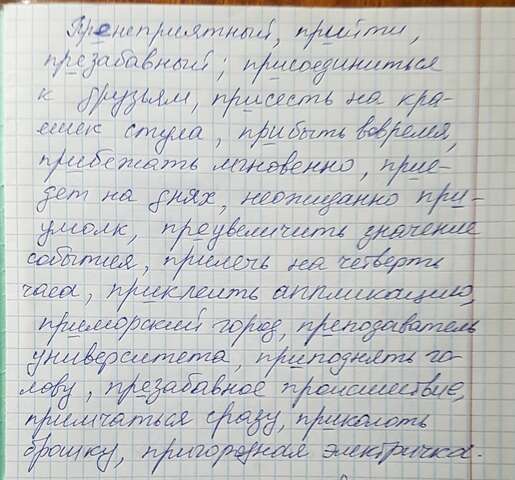 Пренеприятный, прийти,
презабавный; присоединиться
к друзьям, присесть на кра-
ешек стула, прибыть вовремя,
прибежать мгновенно, прие-
дет на днях, неожиданно при-
умолк, преувеличить значение
события, прилечь на четверть
часа, приклеить аппликацию,
приморский город, преподаватель
университета, приподнять го-
лову, презабавное происшествие,
примчаться сразу, приколоть
брошку, пригородная электричка.